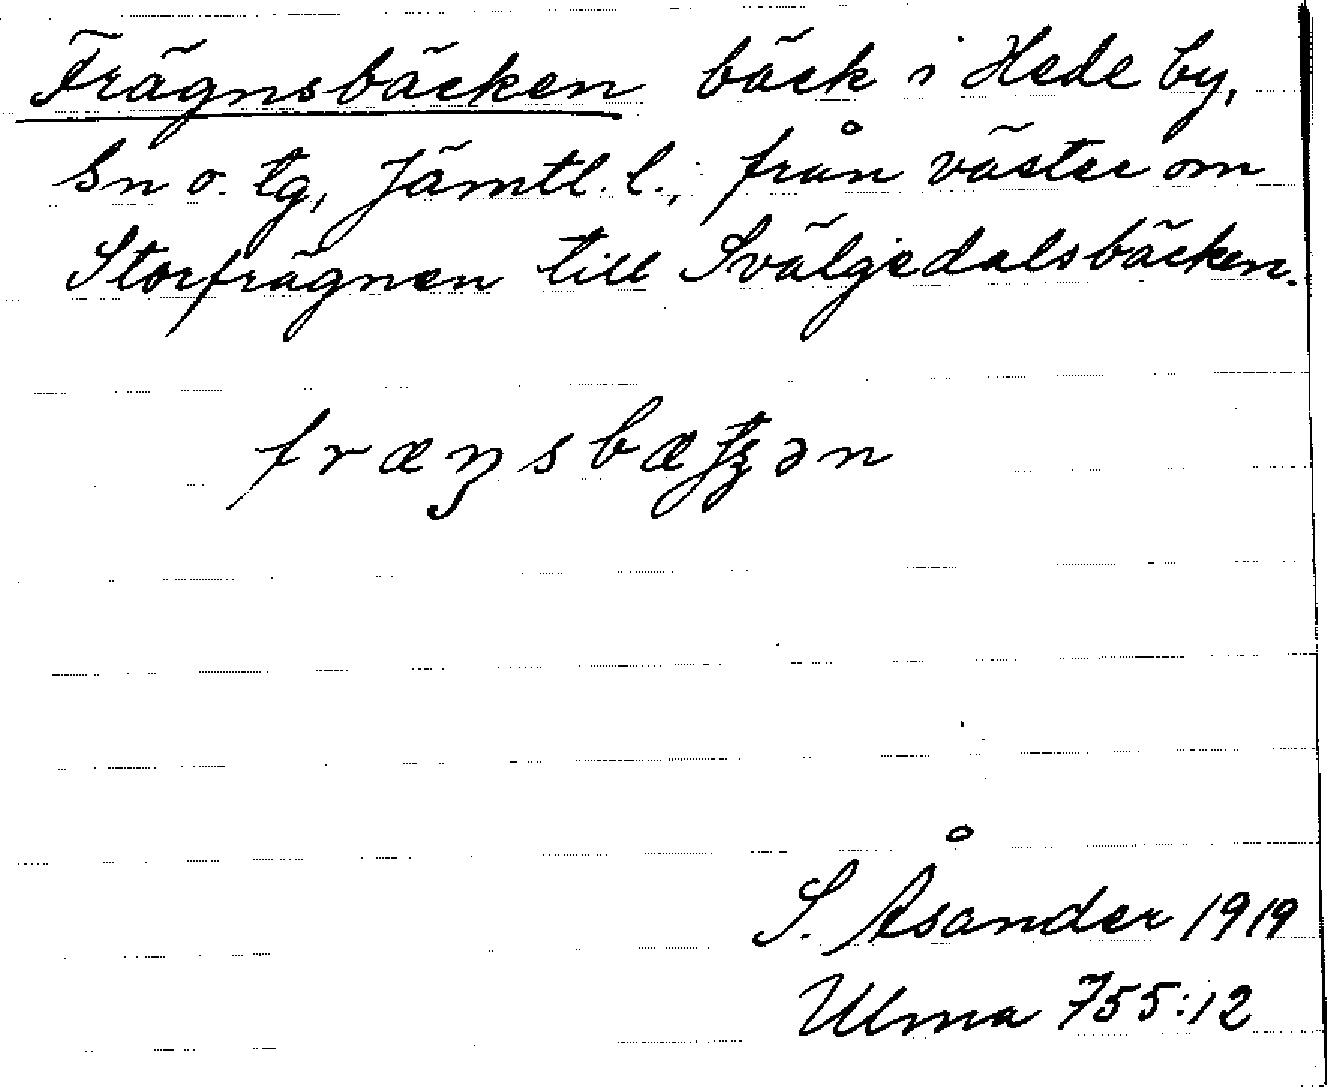 Frägnsbäcken bäck i Hede by,
sn o. tg, Jämtl. l., från väster om
Storfrägnen till Svälgedalsbäcken.
S. Åsander 1919
Ulma 755:12